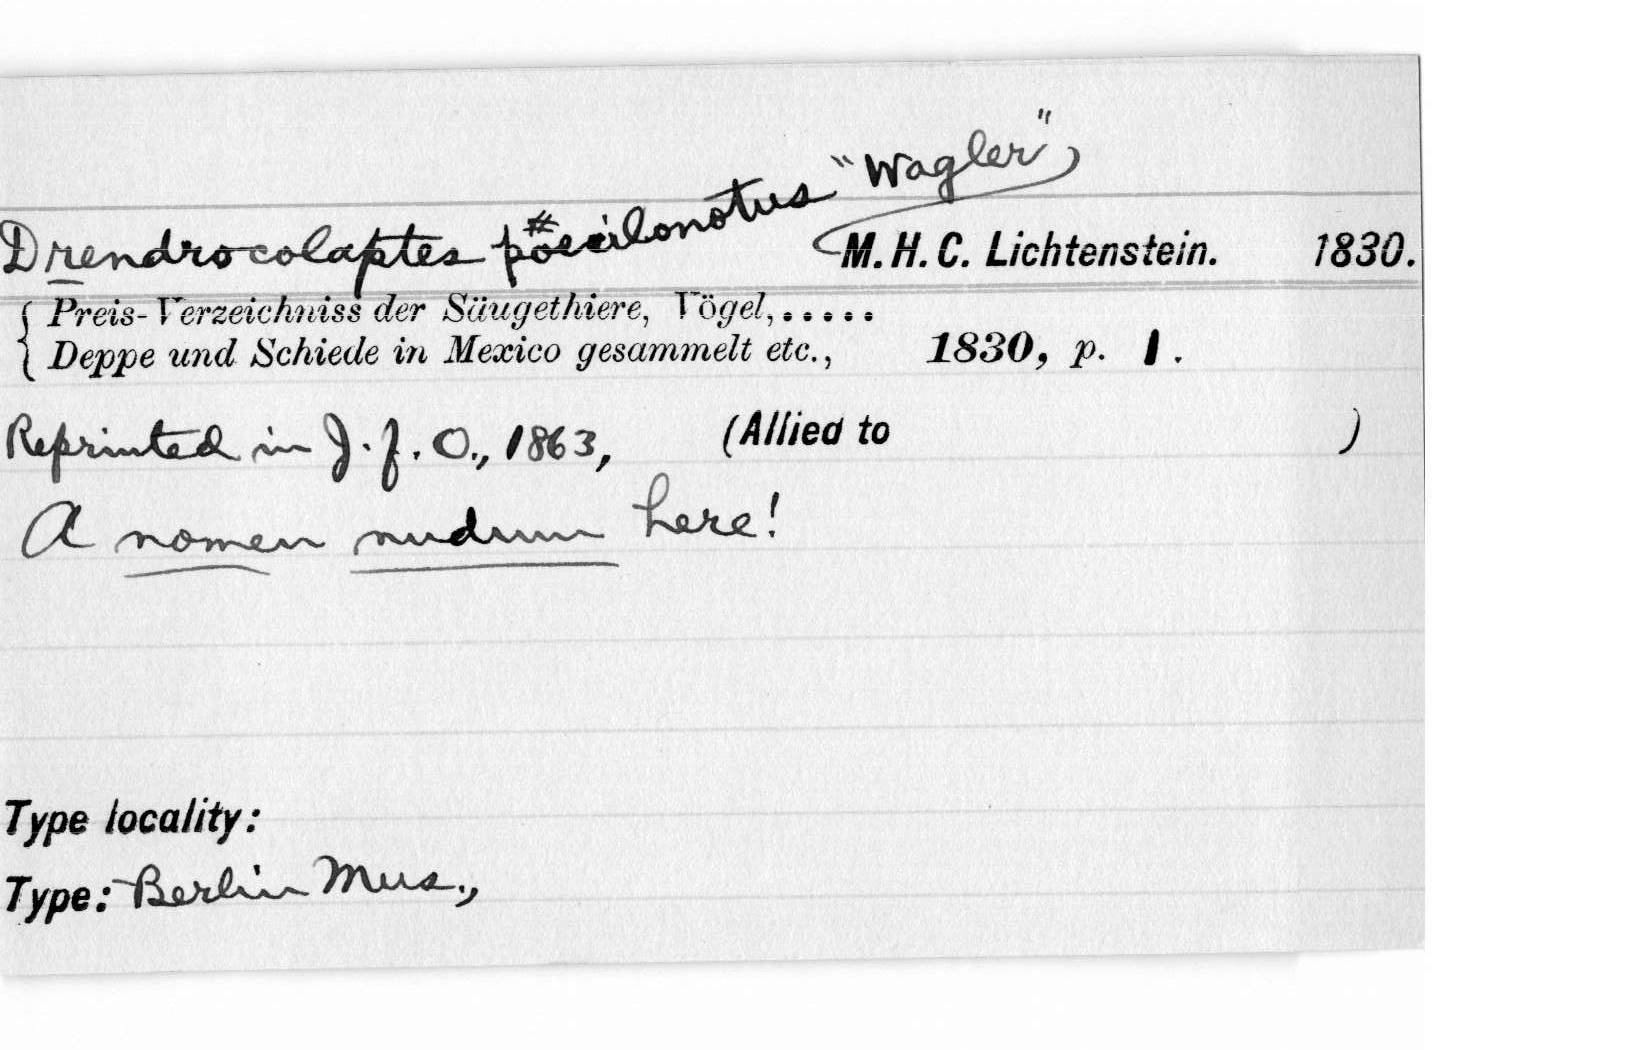 Drendrocolaptes poecilonotus "Wagler",
M. H. C. Lichtenstein. 1830.
Preis-Verzeichniss der Säugethiere, Vögel,.....
Deppe und Schiede in Mexico gesammelt etc., 1830, p. 1.
Reprinted in J. f. O., 1863, (Allied to )
A nomen nudum here!
Type locality:
Type: Berlin Mus.,